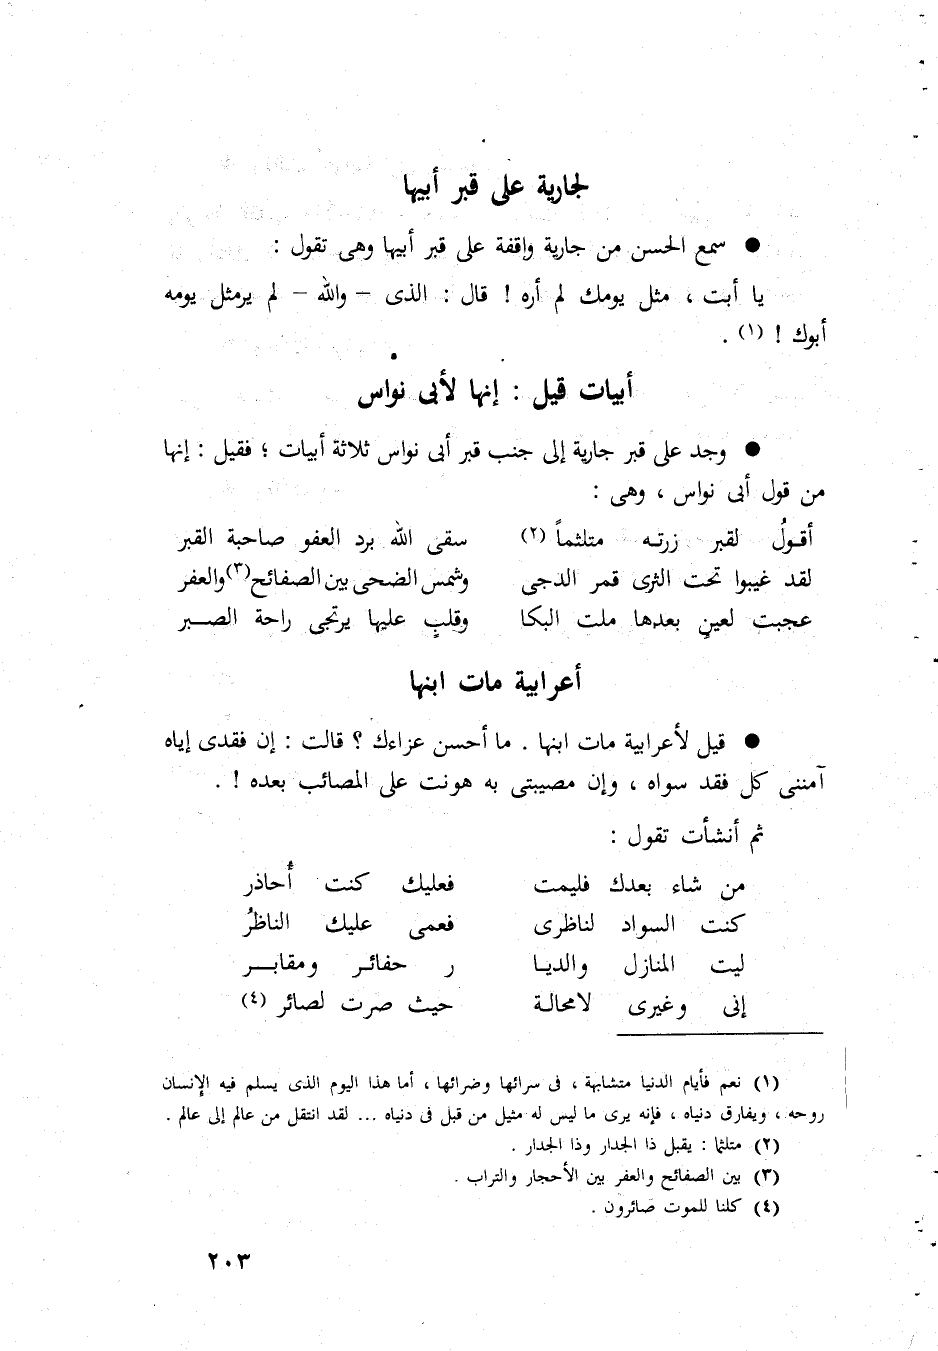 لجارية على قبر أبيها
● سمع الحسن من جارية واقفة على قبر أبيها وهى تقول :
يا أبت ، مثل يومك لم أره ! قال : الذى – والله – لم يرمثل يومه
أبوك ! (١) .
أبيات قيل : إنها لأبى نواس
● وجد على قبر جارية إلى جنب قبر أبى نواس ثلاثة أبيات ؛ فقيل : إنها
من قول أبى نواس ، وهى :
أقـولُ لقبر زرتـه متلثماً (٢) سقى الله برد العفو صاحبة القبر
لقد غيبوا تحت الثرى قمر الدجى وشمس الضحى بين الصفائح(٣) والعفر
عجبت لعينٍ بعدها ملت البكا وقلبٍ عليها يرتجى راحة الصـبر
أعرابية مات ابنها
● قيل لأعرابية مات ابنها . ما أحسن عزاءك ؟ قالت : إن فقدى إياه
آمننى كل فقد سواه ، وإن مصيبتى به هونت على المصائب بعده ! .
ثم أنشأت تقول :
من شاء بعدك فليمت فعليك كنت أُحاذر
كنت السواد لناظرى فعمى عليك الناظرُ
ليت المنازل والديـا ر حفائـر ومقابـر
إنى وغيرى لامحالـة حيث صرت لصائر (٤)
(١) نعم فأيام الدنيا متشابهة ، فى سرائها وضرائها ، أما هذا اليوم الذى يسلم فيه الإنسان
روحه ، ويفارق دنياه ، فإنه يرى ما ليس له مثيل من قبل فى دنياه ... لقد انتقل من عالم إلى عالم .
(٢) متلثما : يقبل ذا الجدار وذا الجدار .
(٣) بين الصفائح والعفر بين الأحجار والتراب .
(٤) كلنا للموت صائرون .
٢٠٣